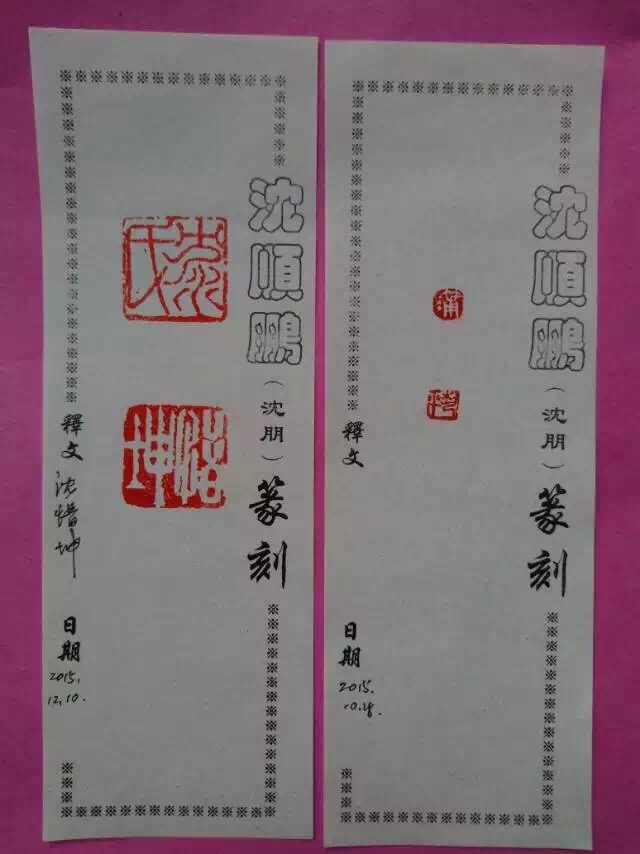 沈順鵬（沈朋）篆刻
釋文 沈惜坤
日期
2015.
12.10.
沈順鵬（沈朋）篆刻
釋文
日期
2015.
10.28.